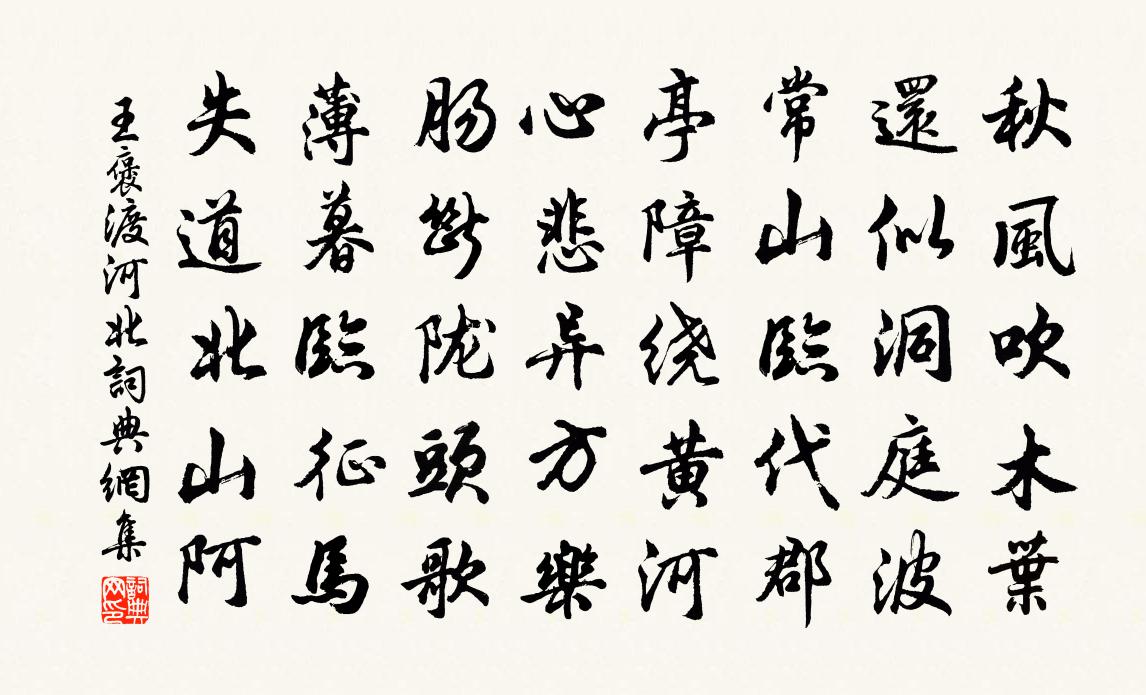 秋風吹木葉
還似洞庭波
常山臨代郡
亭障绕黄河
心悲异方樂
肠斷陇頭歌
薄暮臨征馬
失道北山阿
王褒渡河北詞典網集
詞典网印